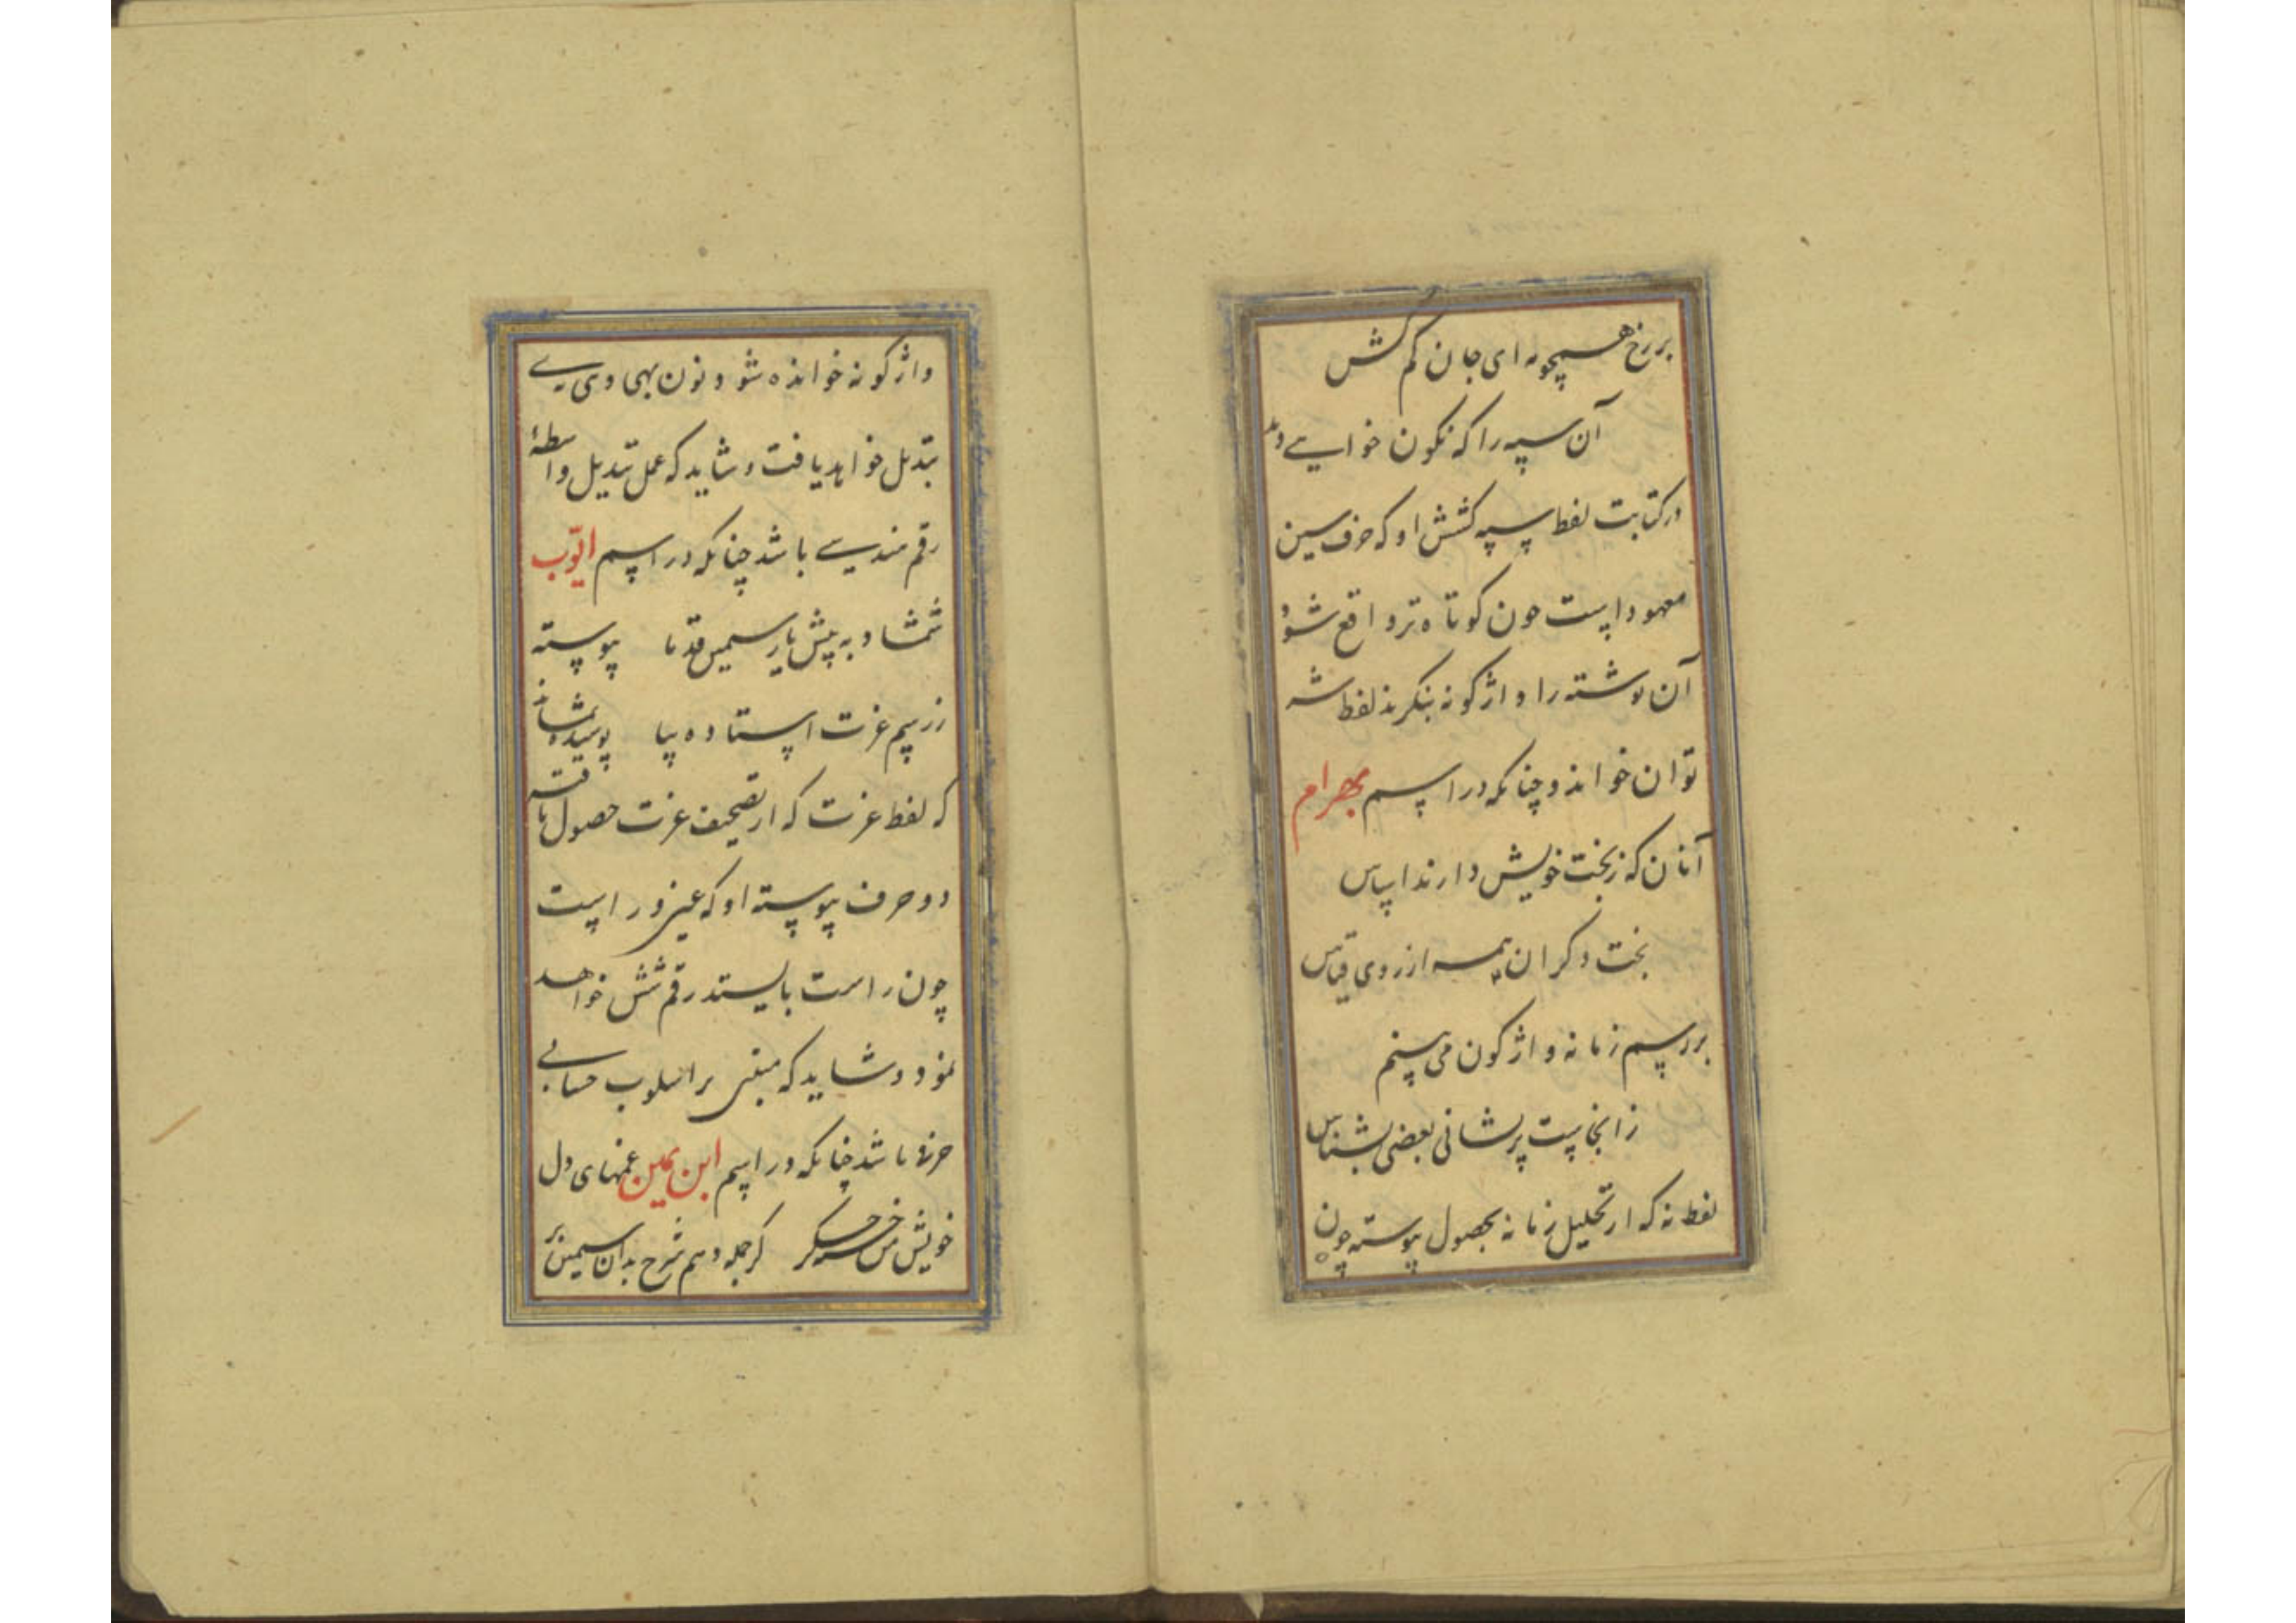 بر رخ همچو مه ای جان کم کش
آن سیه را که نکون خواسے
در کتابت لفظ سیه کشش او که حرف سین
معهود است چون کوتاه تر واقع شود
آن نوشته را واژکونه بنکرند لفظ
توان خواند و چنانکه در اسم بهرام
آنان که ز بخت خویش دارند اساس
بخت دکران همه از روی قیاس
بر رسم زمانه واژکون می بینم
زانجاست پریشانی بعضی بشناس
لفظ نه که از تحلیل زمانه بحصول پیوسته چون
واژکونه خوانده شود نون بهی وی بے
تبدیل خواهد یافت و شاید که عمل تبدیل واسطهٔ
رقم هندسے باشد چنانکه در اسم ایّوب
شمشاد به پیش یار سیمین قد ما پیوسته
ز رسم عزت استاده بپا پوشیده نماند
که لفظ عزت که از تصحیف عزت حصول یافته
دو حرف پیوسته او که غیر و راست
چون راست بایستد رقم شش خواهد
نمود و شاید که مبنی بر اسلوب حسابی
حرفی باشد چنانکه در اسم ابن یمین غمهای دل
خویش من خسته جکر کر جمله دهم شرح بدان سیمین بر